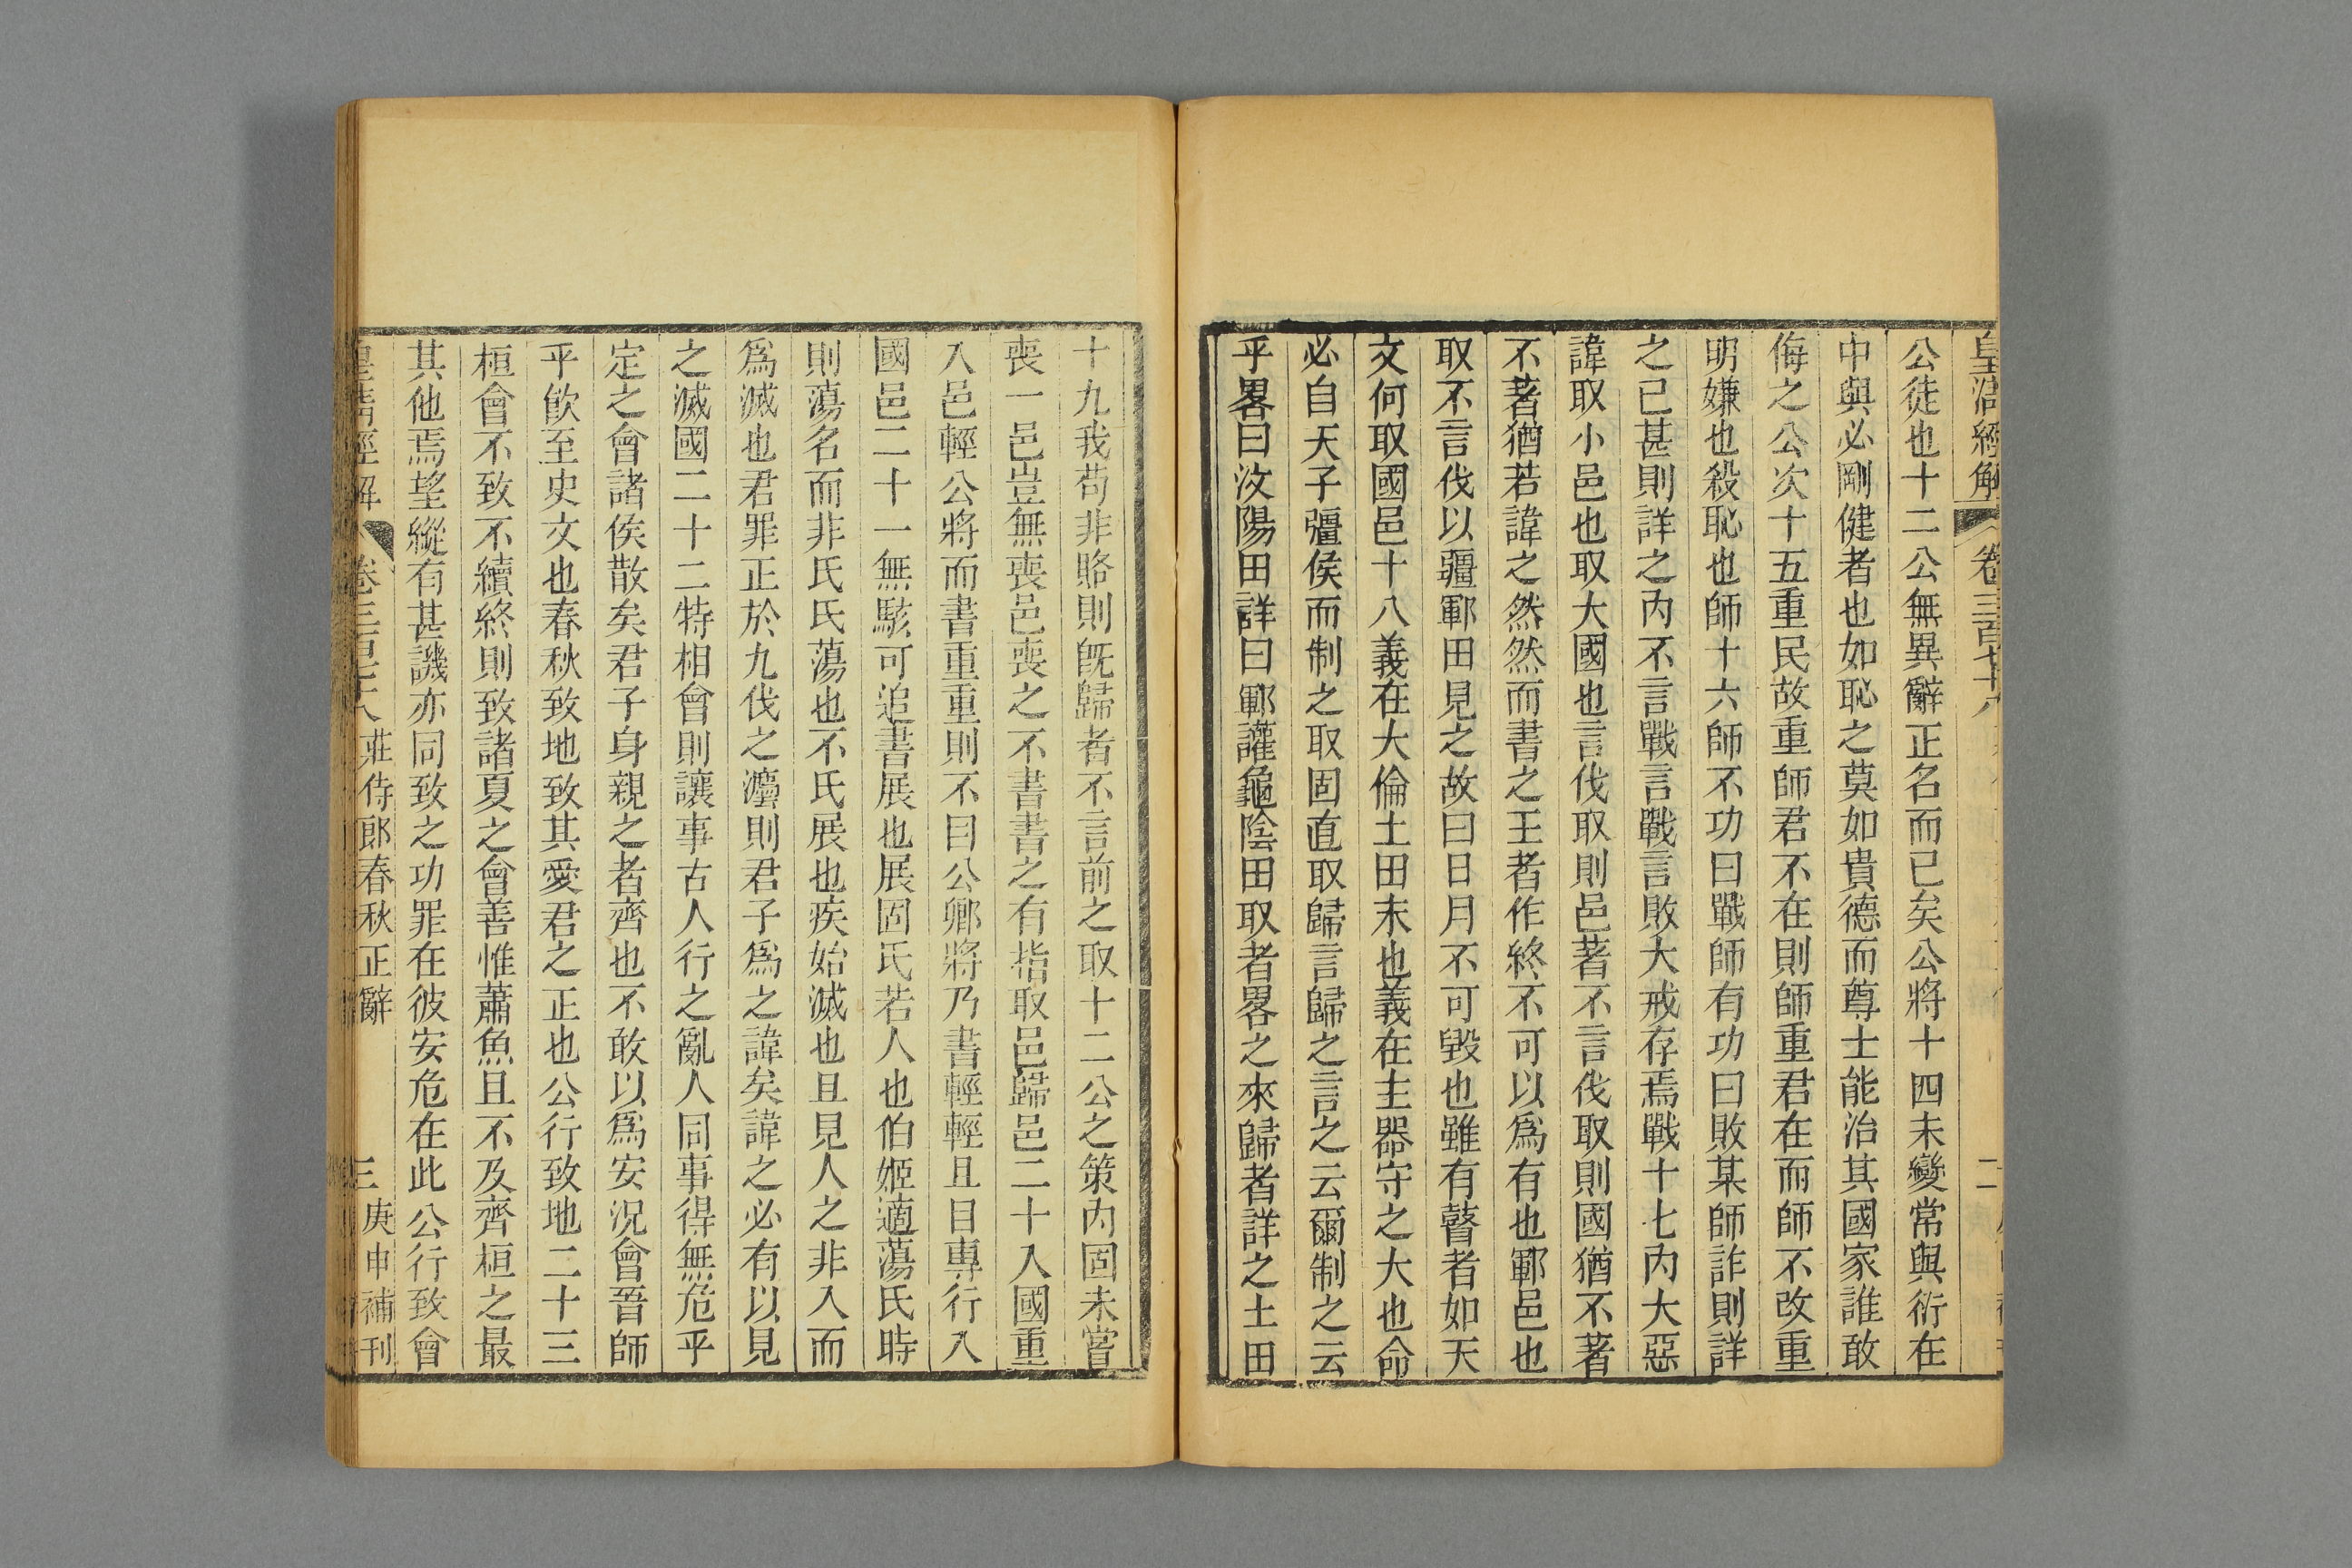 皇清經解 卷三百七十八 二
公徒也十二公無異辭正名而已矣公將十四未變常與衍在
中與必剛健者也如恥之莫如貴德而尊士能治其國家誰敢
侮之公次十五重民故重師君不在則師重君在而師不改重
明嫌也殺恥也師十六師不功曰戰師有功曰敗某師詐則詳
之已甚則詳之内不言戰言戰言敗大戒存焉戰十七内大惡
諱取小邑也取大國也言伐取則邑著不言伐取則國猶不著
不著猶若諱之然然而書之王者作終不可以爲有也鄆邑也
取不言伐以疆鄆田見之故曰日月不可毀也雖有瞽者如天
文何取國邑十八義在大倫土田末也義在主器守之大也命
必自天子疆侯而制之取固直取歸言歸之言之云爾制之云
乎畧曰汶陽田詳曰鄆讙龜陰田取者畧之來歸者詳之土田
十九我苟非賂則旣歸者不言前之取十二公之策内固未嘗
喪一邑豈無喪邑喪之不書書之有指取邑歸邑二十入國重
入邑輕公將而書重重則不曰公卿將乃書輕輕且目專行入
國邑二十一無駭可追書展也展固氏若人也伯姬適蕩氏時
則蕩名而非氏氏蕩也不氏展也疾始滅也且見人之非入而
爲滅也君罪正於九伐之灋則君子爲之諱矣諱之必有以見
之滅國二十二特相會則讓事古人行之亂人同事得無危乎
定之會諸侯散矣君子身親之者齊也不敢以爲安況會晉師
乎飮至史文也春秋致地致其愛君之正也公行致地二十三
桓會不致不續終則致諸夏之會善惟蕭魚且不及齊桓之最
其他焉望縱有甚譏亦同致之功罪在彼安危在此公行致會
皇清經解 卷三百七十八 莊侍郎春秋正辭 三 庚申補刊